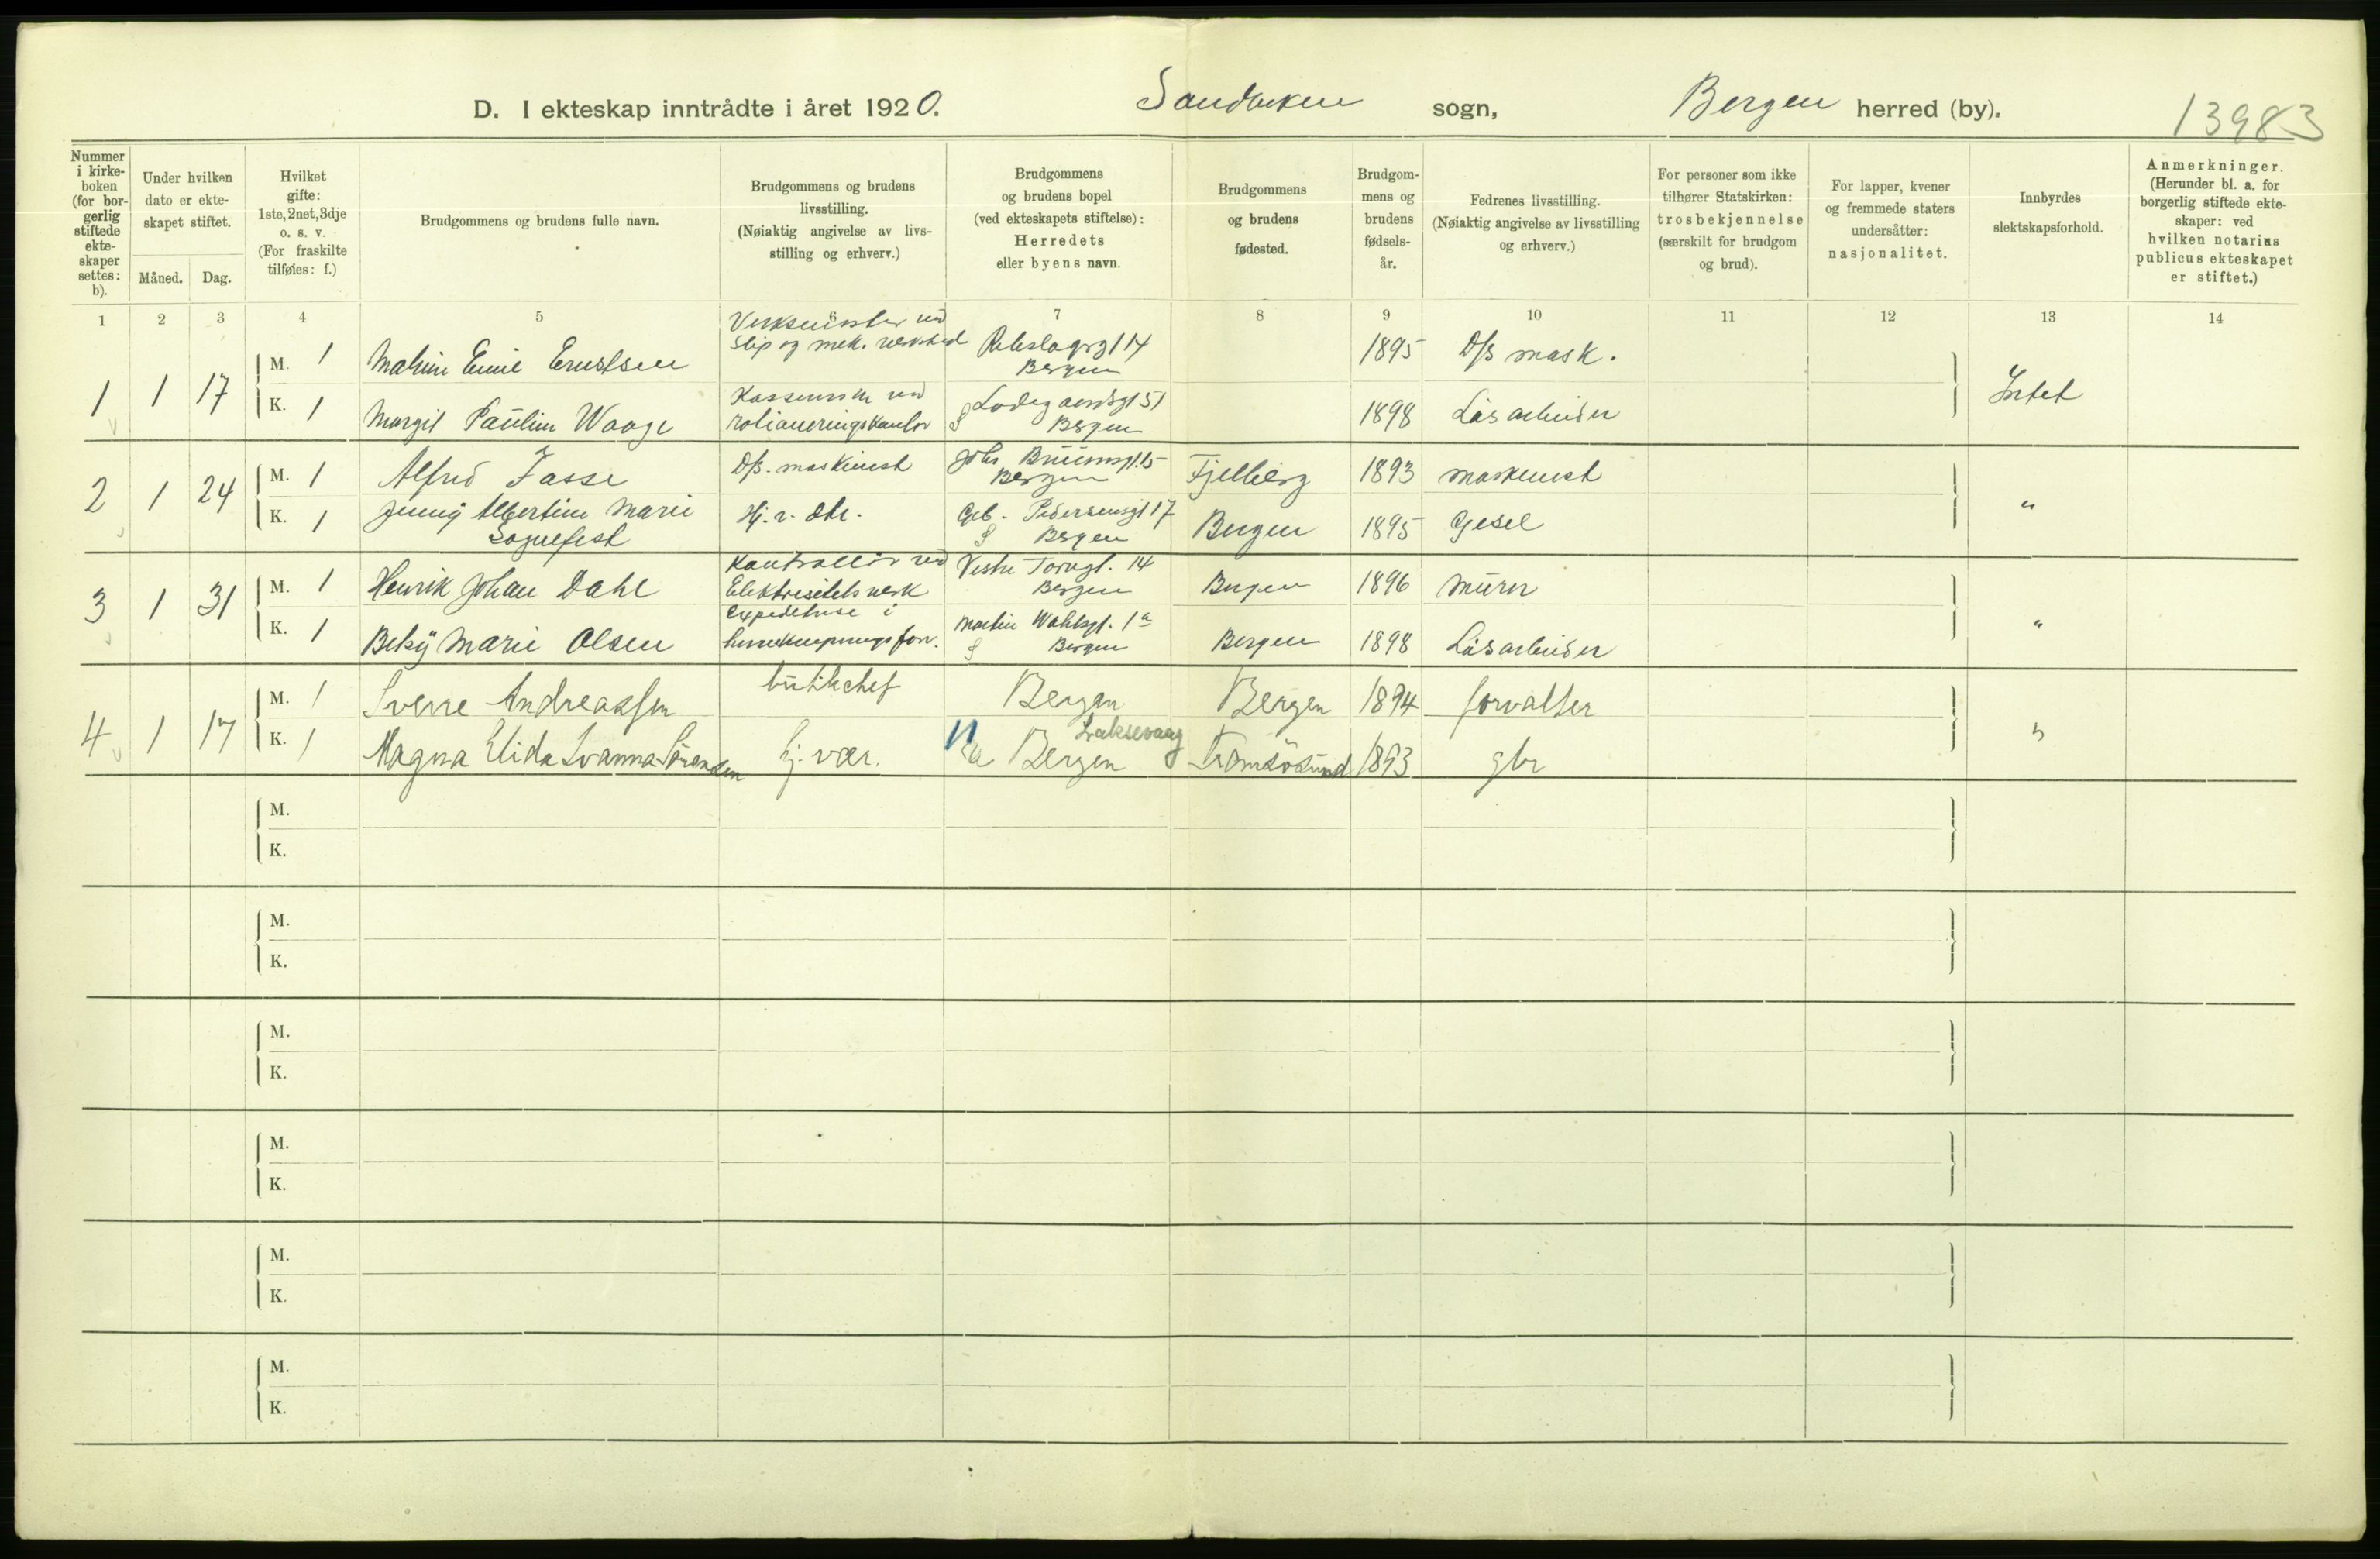 D. I ekteskap inntrådte i året 1920. Sandviken sogn, Bergen herred (by). 13983
Nummer i kirkeboken (for borgerlig stiftede ekteskaper settes: b).
Under hvilken dato er ekteskapet stiftet.
Måned. Dag.
Hvilket gifte: 1ste, 2net, 3dje o. s. v. (For fraskilte tilføies: f.)
Brudgommens og brudens fulle navn.
Brudgommens og brudens livsstilling. (Nøiaktig angivelse av livsstilling og erhverv.)
Brudgommens og brudens bopel (ved ekteskapets stiftelse): Herredets eller byens navn.
Brudgommens og brudens fødested.
Brudgommens og brudens fødselsår.
Fedrenes livsstilling. (Nøiaktig angivelse av livsstilling og erhverv.)
For personer som ikke tilhører Statskirken: trosbekjennelse (særskilt for brudgom og brud).
For lapper, kvener og fremmede staters undersåtter: nasjonalitet.
Innbyrdes slektskapsforhold.
Anmerkninger. (Herunder bl. a. for borgerlig stiftede ekteskaper: ved hvilken notarius publicus ekteskapet er stiftet.)
1 2 3 4 5 6 7 8 9 10 11 12 13 14
1 1 17 M. 1 Emil Ernstsen Slip og mek. verksted Bergen 1895 D/s mask. Intet
K. 1 Margit Pauline Waage rationeringskontor Ladegaardsgt 51 Bergen 1898 Løsarbeider
2 1 24 M. 1 Alfred Fasse D/s. maskinist Johs Bruunsgt. 15 Bergen Fjelberg 1893 maskinist "
K. 1 Jenny Albertine Marie Sognefest Hj. v. Pedersensgt 17 Bergen Bergen 1895 Gjesel
3 1 31 M. 1 Henrik Johan Dahl Kontrollör ved Elektrisitetsverk Vestre Torvgt. 14 Bergen Bergen 1896 Murer "
K. 1 Marie Olsen i Martin Wahlsgt. 1a Bergen Bergen 1898 Løsarbeider
4 1 17 M. 1 Sverre Andreassen butikchef Bergen Bergen 1894 forvalter "
K. 1 Magna Elida Ivanna Sörensen hj. vær. Laksevaag Bergen Tromsösund 1893 gbr
M.
K.
M.
K.
M.
K.
M.
K.
M.
K.
M.
K.